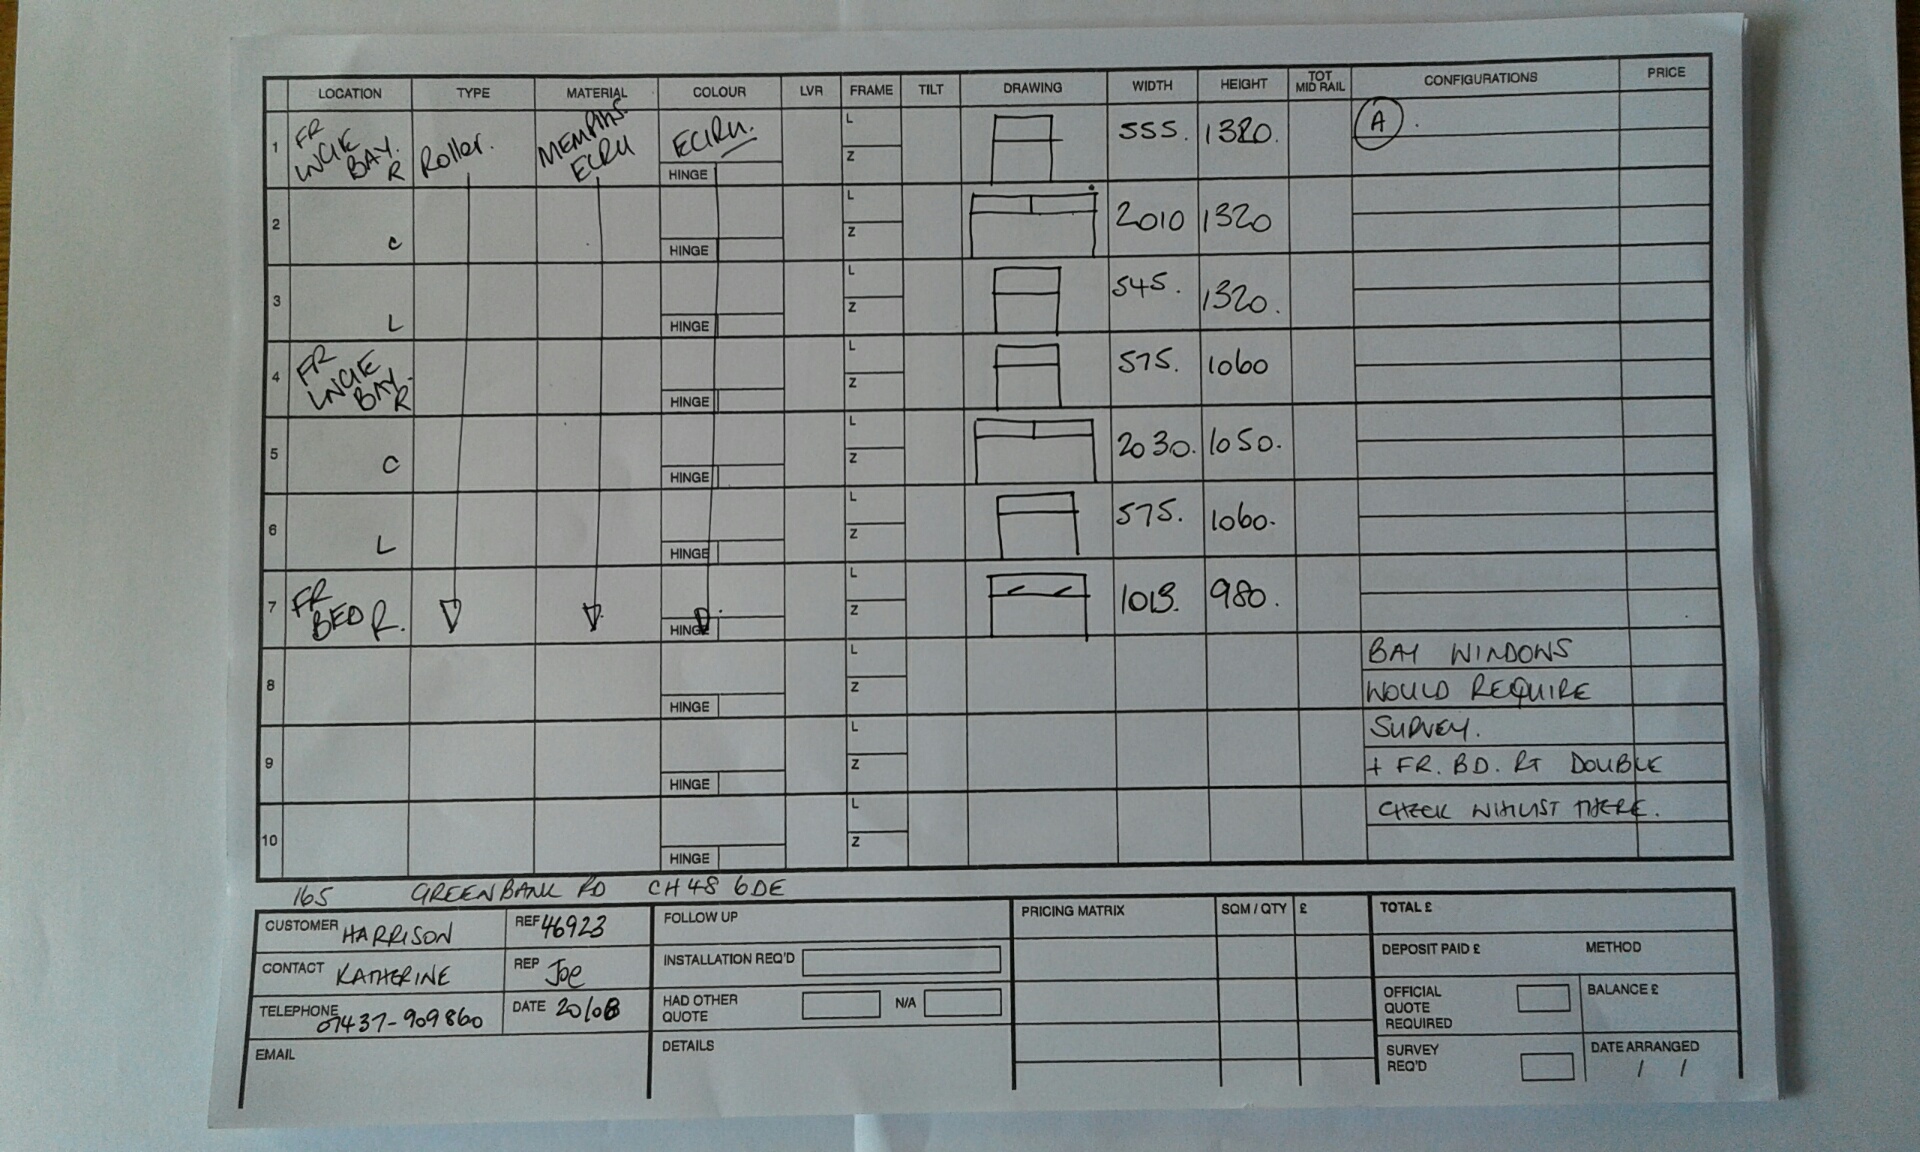 LOCATION TYPE MATERIAL COLOUR LVR FRAME TILT DRAWING WIDTH HEIGHT TOT MID RAIL CONFIGURATIONS PRICE
1 FR LNGIE BAY. R Roller. MEMPHIS ECRU ECRU. HINGE L Z 555. 1320. A.
2 C HINGE L Z 2010 1320
3 L HINGE L Z 545. 1320.
4 FR LNGIE BAY. R HINGE L Z 575. 1060
5 C HINGE L Z 2030. 1050.
6 L HINGE L Z 575. 1060.
7 FR BED R. HINGE L Z 980.
8 HINGE L Z
BAY WINDOWS
WOULD REQUIRE
9 HINGE L Z
SURVEY.
+ FR. BD. RT DOUBLE
10 HINGE L Z
CHECK WHILST THERE.
165 GREENBANK RD CH48 6DE
CUSTOMER HARRISON REF 46923
CONTACT KATHERINE REP Joe
TELEPHONE 07437-909860 DATE
EMAIL
FOLLOW UP
INSTALLATION REQ'D
HAD OTHER QUOTE N/A
DETAILS
PRICING MATRIX SQM / QTY £
TOTAL £
DEPOSIT PAID £ METHOD
OFFICIAL QUOTE REQUIRED BALANCE £
SURVEY REQ'D DATE ARRANGED / /